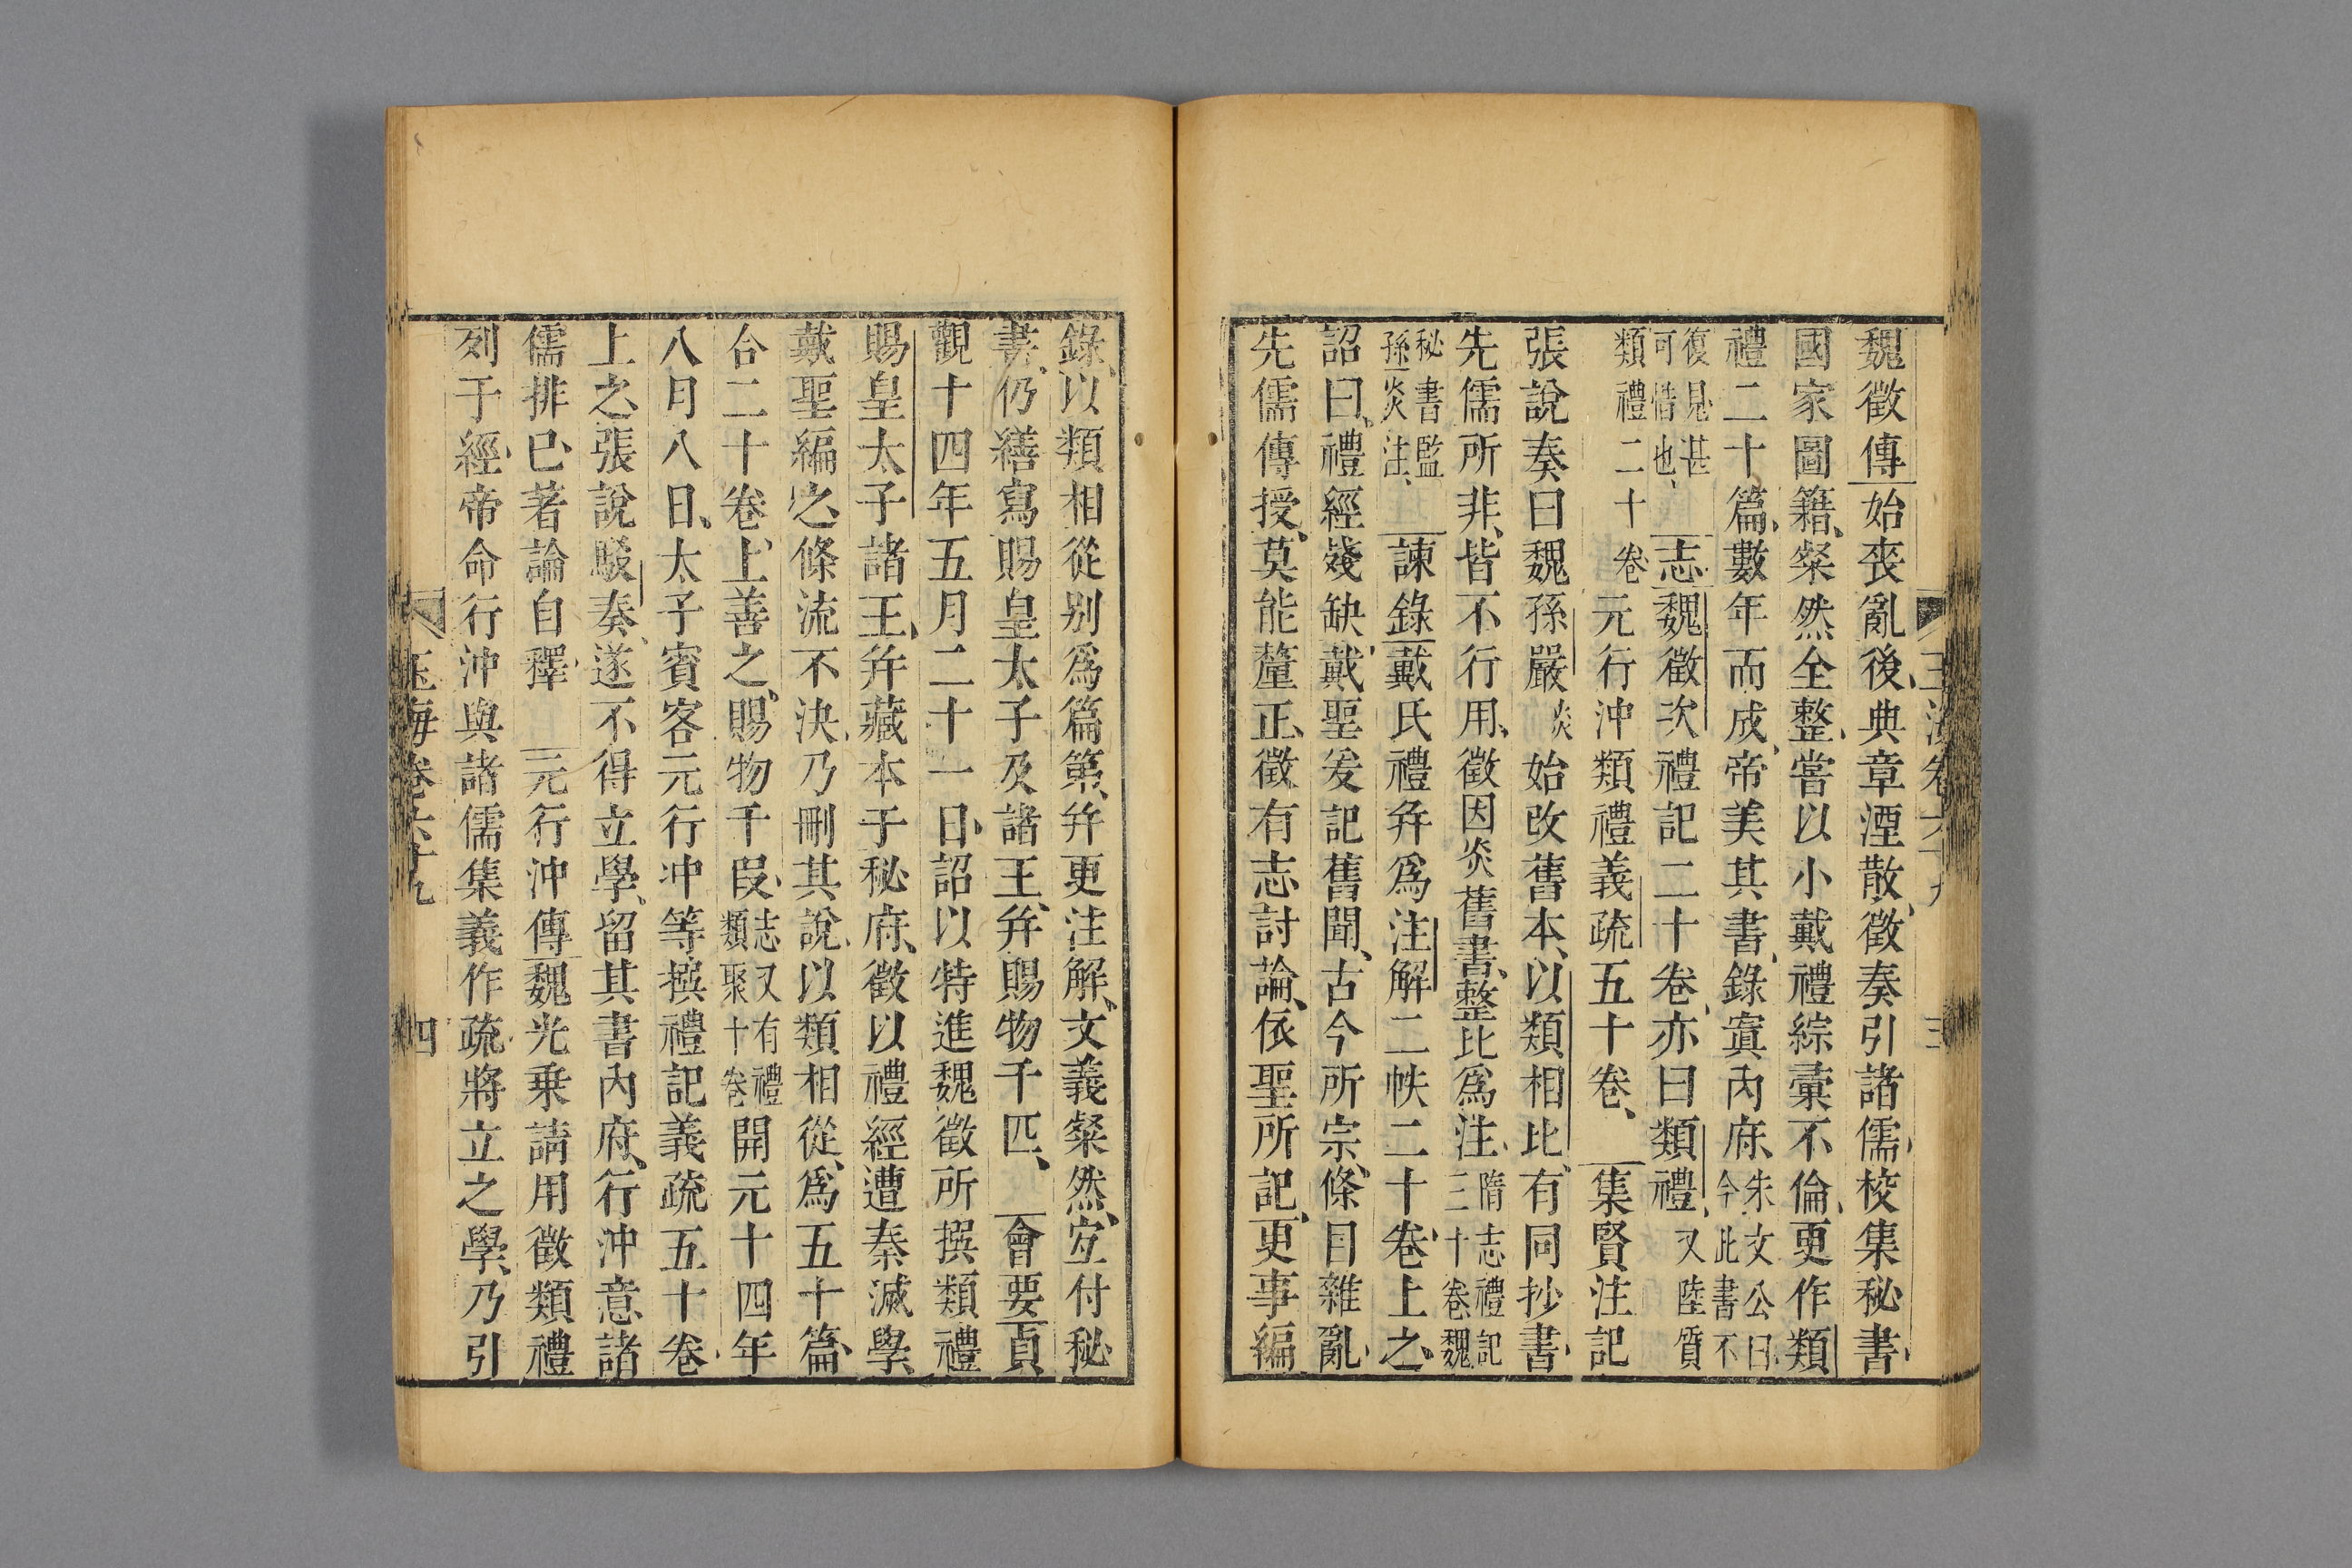 魏徵傳始喪亂後典章湮散徵奏引諸儒校集秘書
國家圖籍粲然全整嘗以小戴禮綜彙不倫更作類
禮二十篇數年而成帝美其書錄寘內府朱文公曰今此書不
復見甚可惜也志魏徵次禮記二十卷亦曰類禮又陸質
類禮二十卷元行沖類禮義疏五十卷集賢注記
張說奏曰魏孫嚴炎始改舊本以類相比有同抄書
先儒所非皆不行用徵因炎舊書整比爲注隋志禮記三十卷魏
秘書監孫炎注諫錄戴氏禮弁爲注解二帙二十卷上之
詔曰禮經殘缺戴聖爰記舊聞古今所宗條目雜亂
先儒傳授莫能釐正徵有志討論依聖所記更事編
玉海卷六十九 三
錄以類相從别爲篇第弁更注解文義粲然宜付秘
書仍繕寫賜皇太子及諸王弁賜物千匹會要貞
觀十四年五月二十一日詔以特進魏徵所撰類禮
賜皇太子諸王弁藏本于秘府徵以禮經遭秦滅學
戴聖編之條流不決乃刪其說以類相從爲五十篇
合二十卷上善之賜物千段志又有禮類聚十卷開元十四年
八月八日太子賓客元行冲等撰禮記義疏五十卷
上之張說駁奏遂不得立學留其書內府行沖意諸
儒排已著論自釋元行沖傳魏光乗請用徵類禮
列于經帝命行沖與諸儒集義作疏將立之學乃引
玉海卷六十九 四